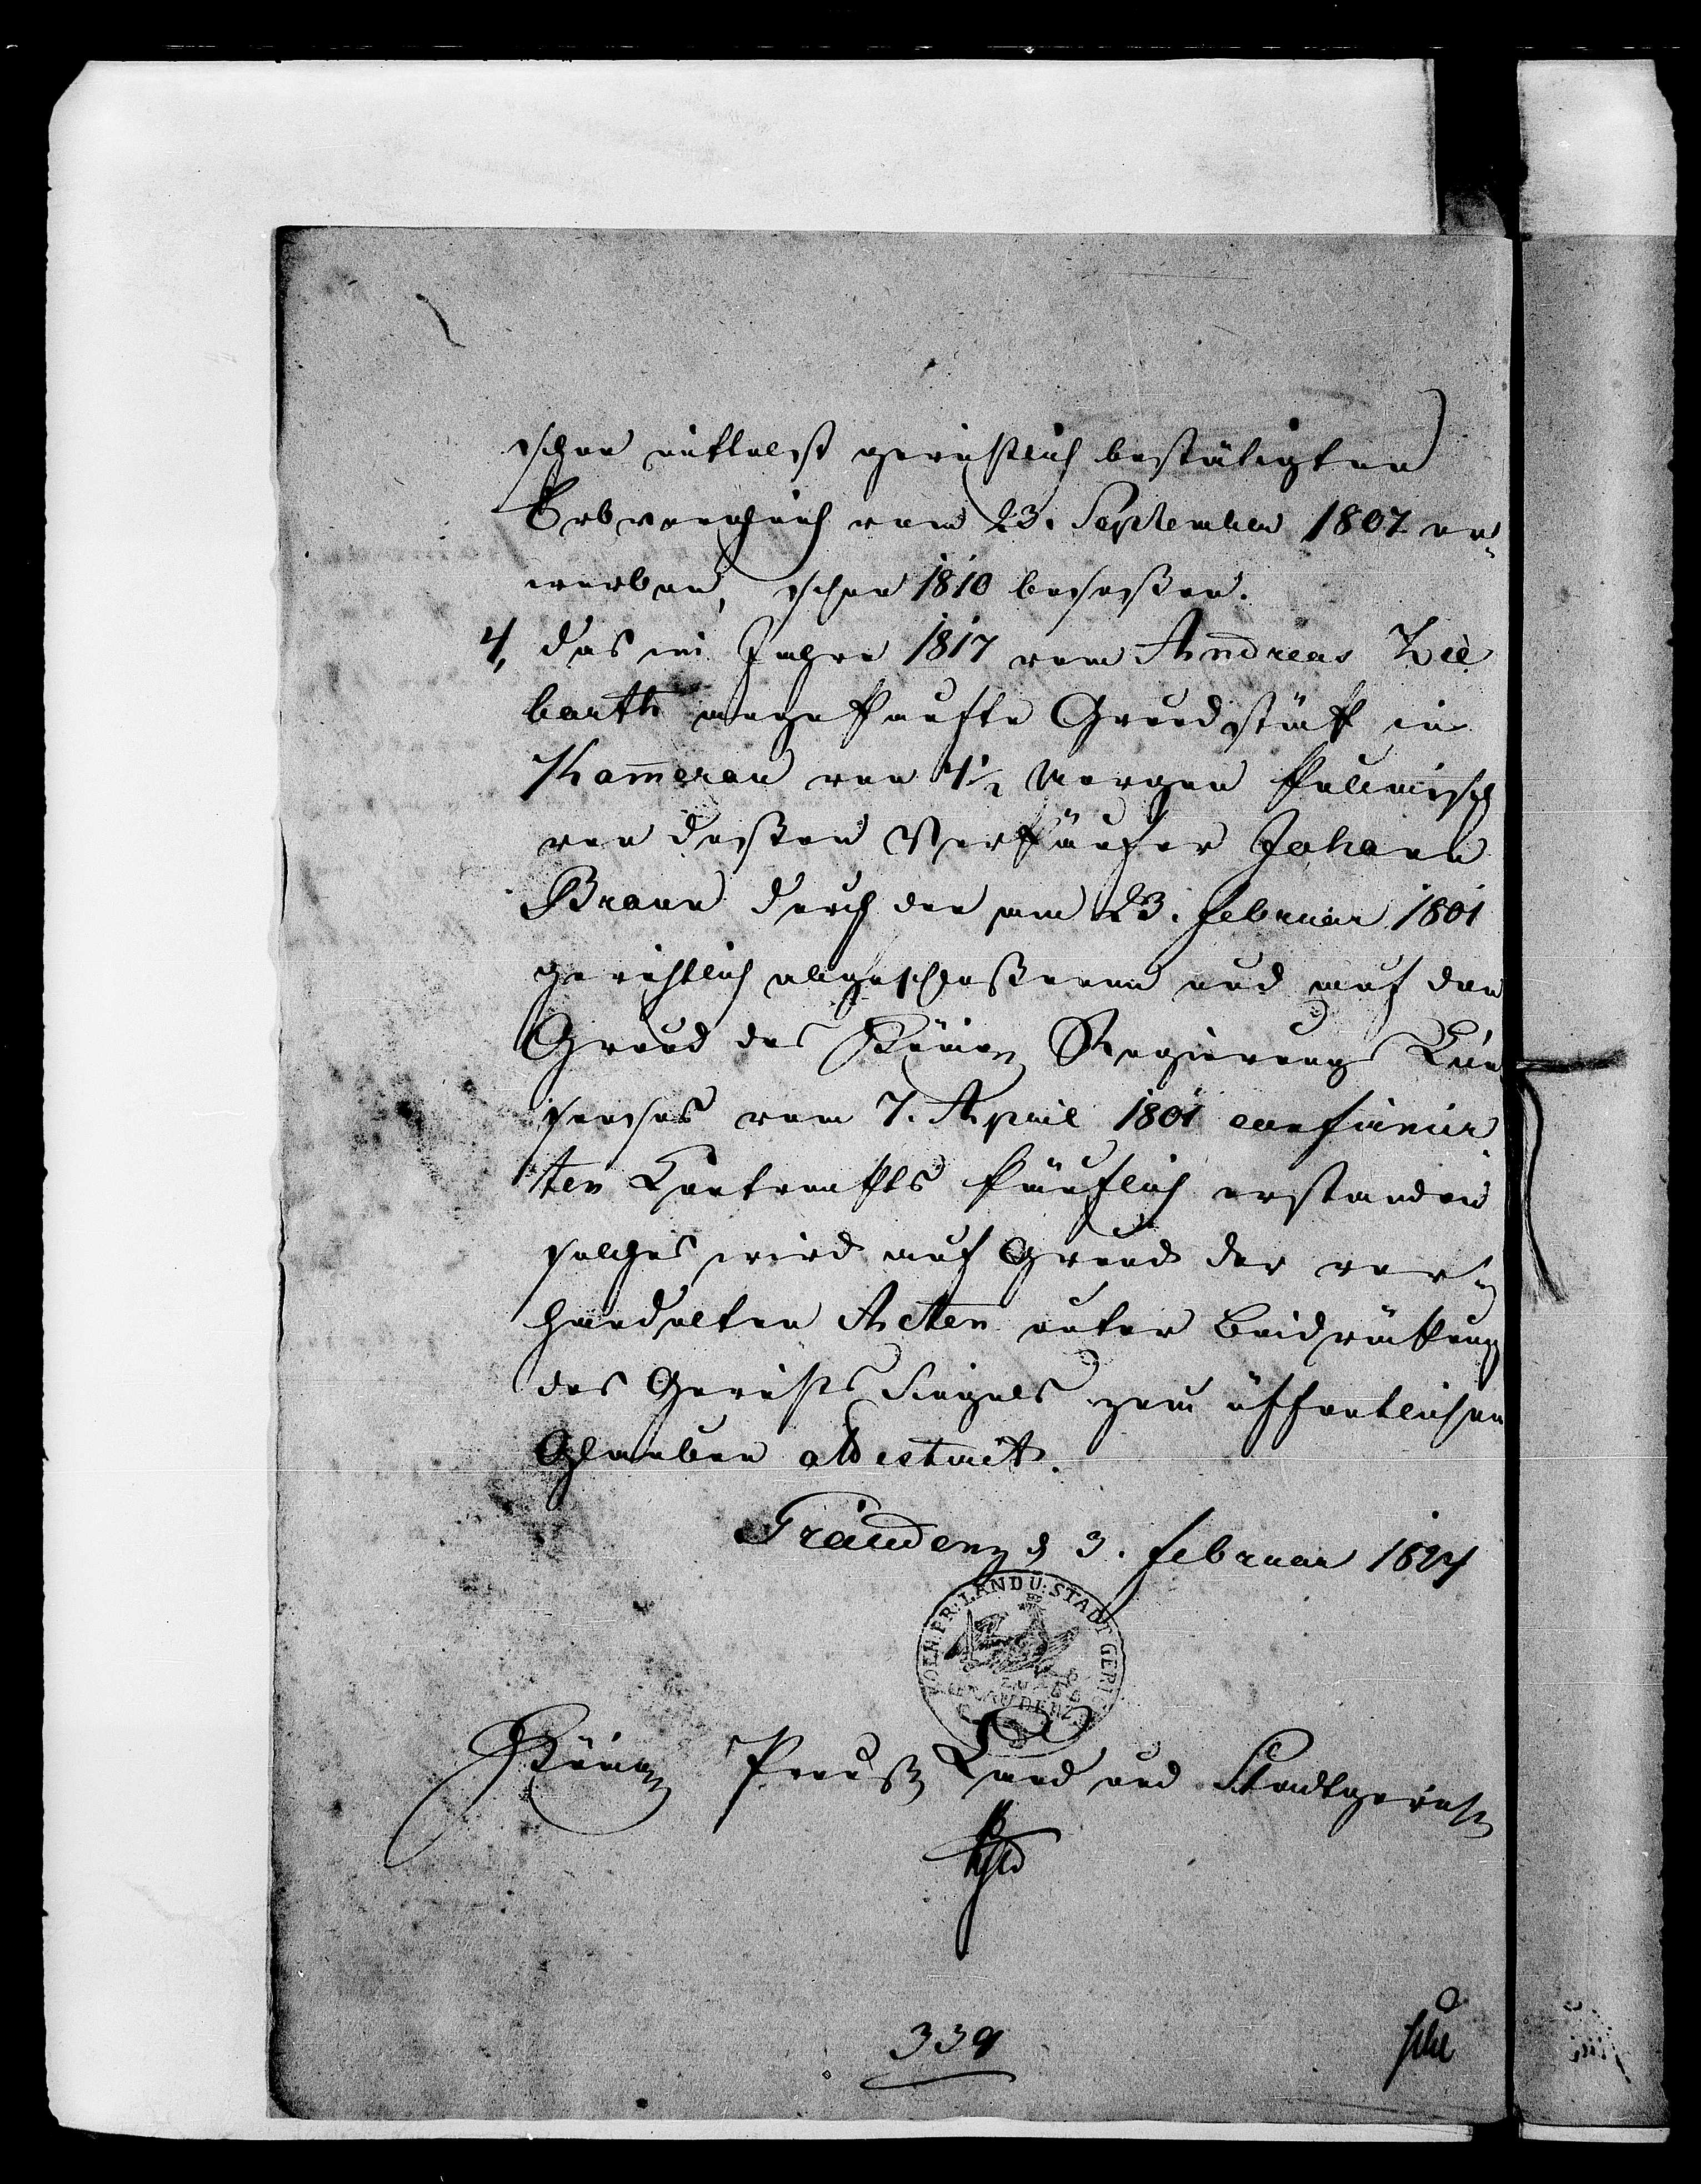 schon mittelst gerichtlich bestätigten
Erbvergleich vom 23. September 1807 er-
worben, schon 1810 besessen.
4, das im Jahre 1817 vom Andreas Zie
barth angekaufte Grundstück in
Kom̄erau von 4½ Morgen kullmisch
von dessen Verkäufer Johann
Braun durch den am 23. Februar 1801
gerichtlich abgeschloßenen und auf den
Grund des Königl Regierungs Con
senses vom 7. April 1801 confirmir
ten Contrackts käuflich erstanden
solches wird auf Grund der ver-
handelten Acten unter Beidrückung
des Gerichts Siegels zum öffentlichen
Glauben attestirt.
Graudenz d 3. Februar 1824
KOEN. PR. LAND U. STADT GERICHT
ZU
GRAUDENZ
Königl Preuß Land und Stadtgericht
339